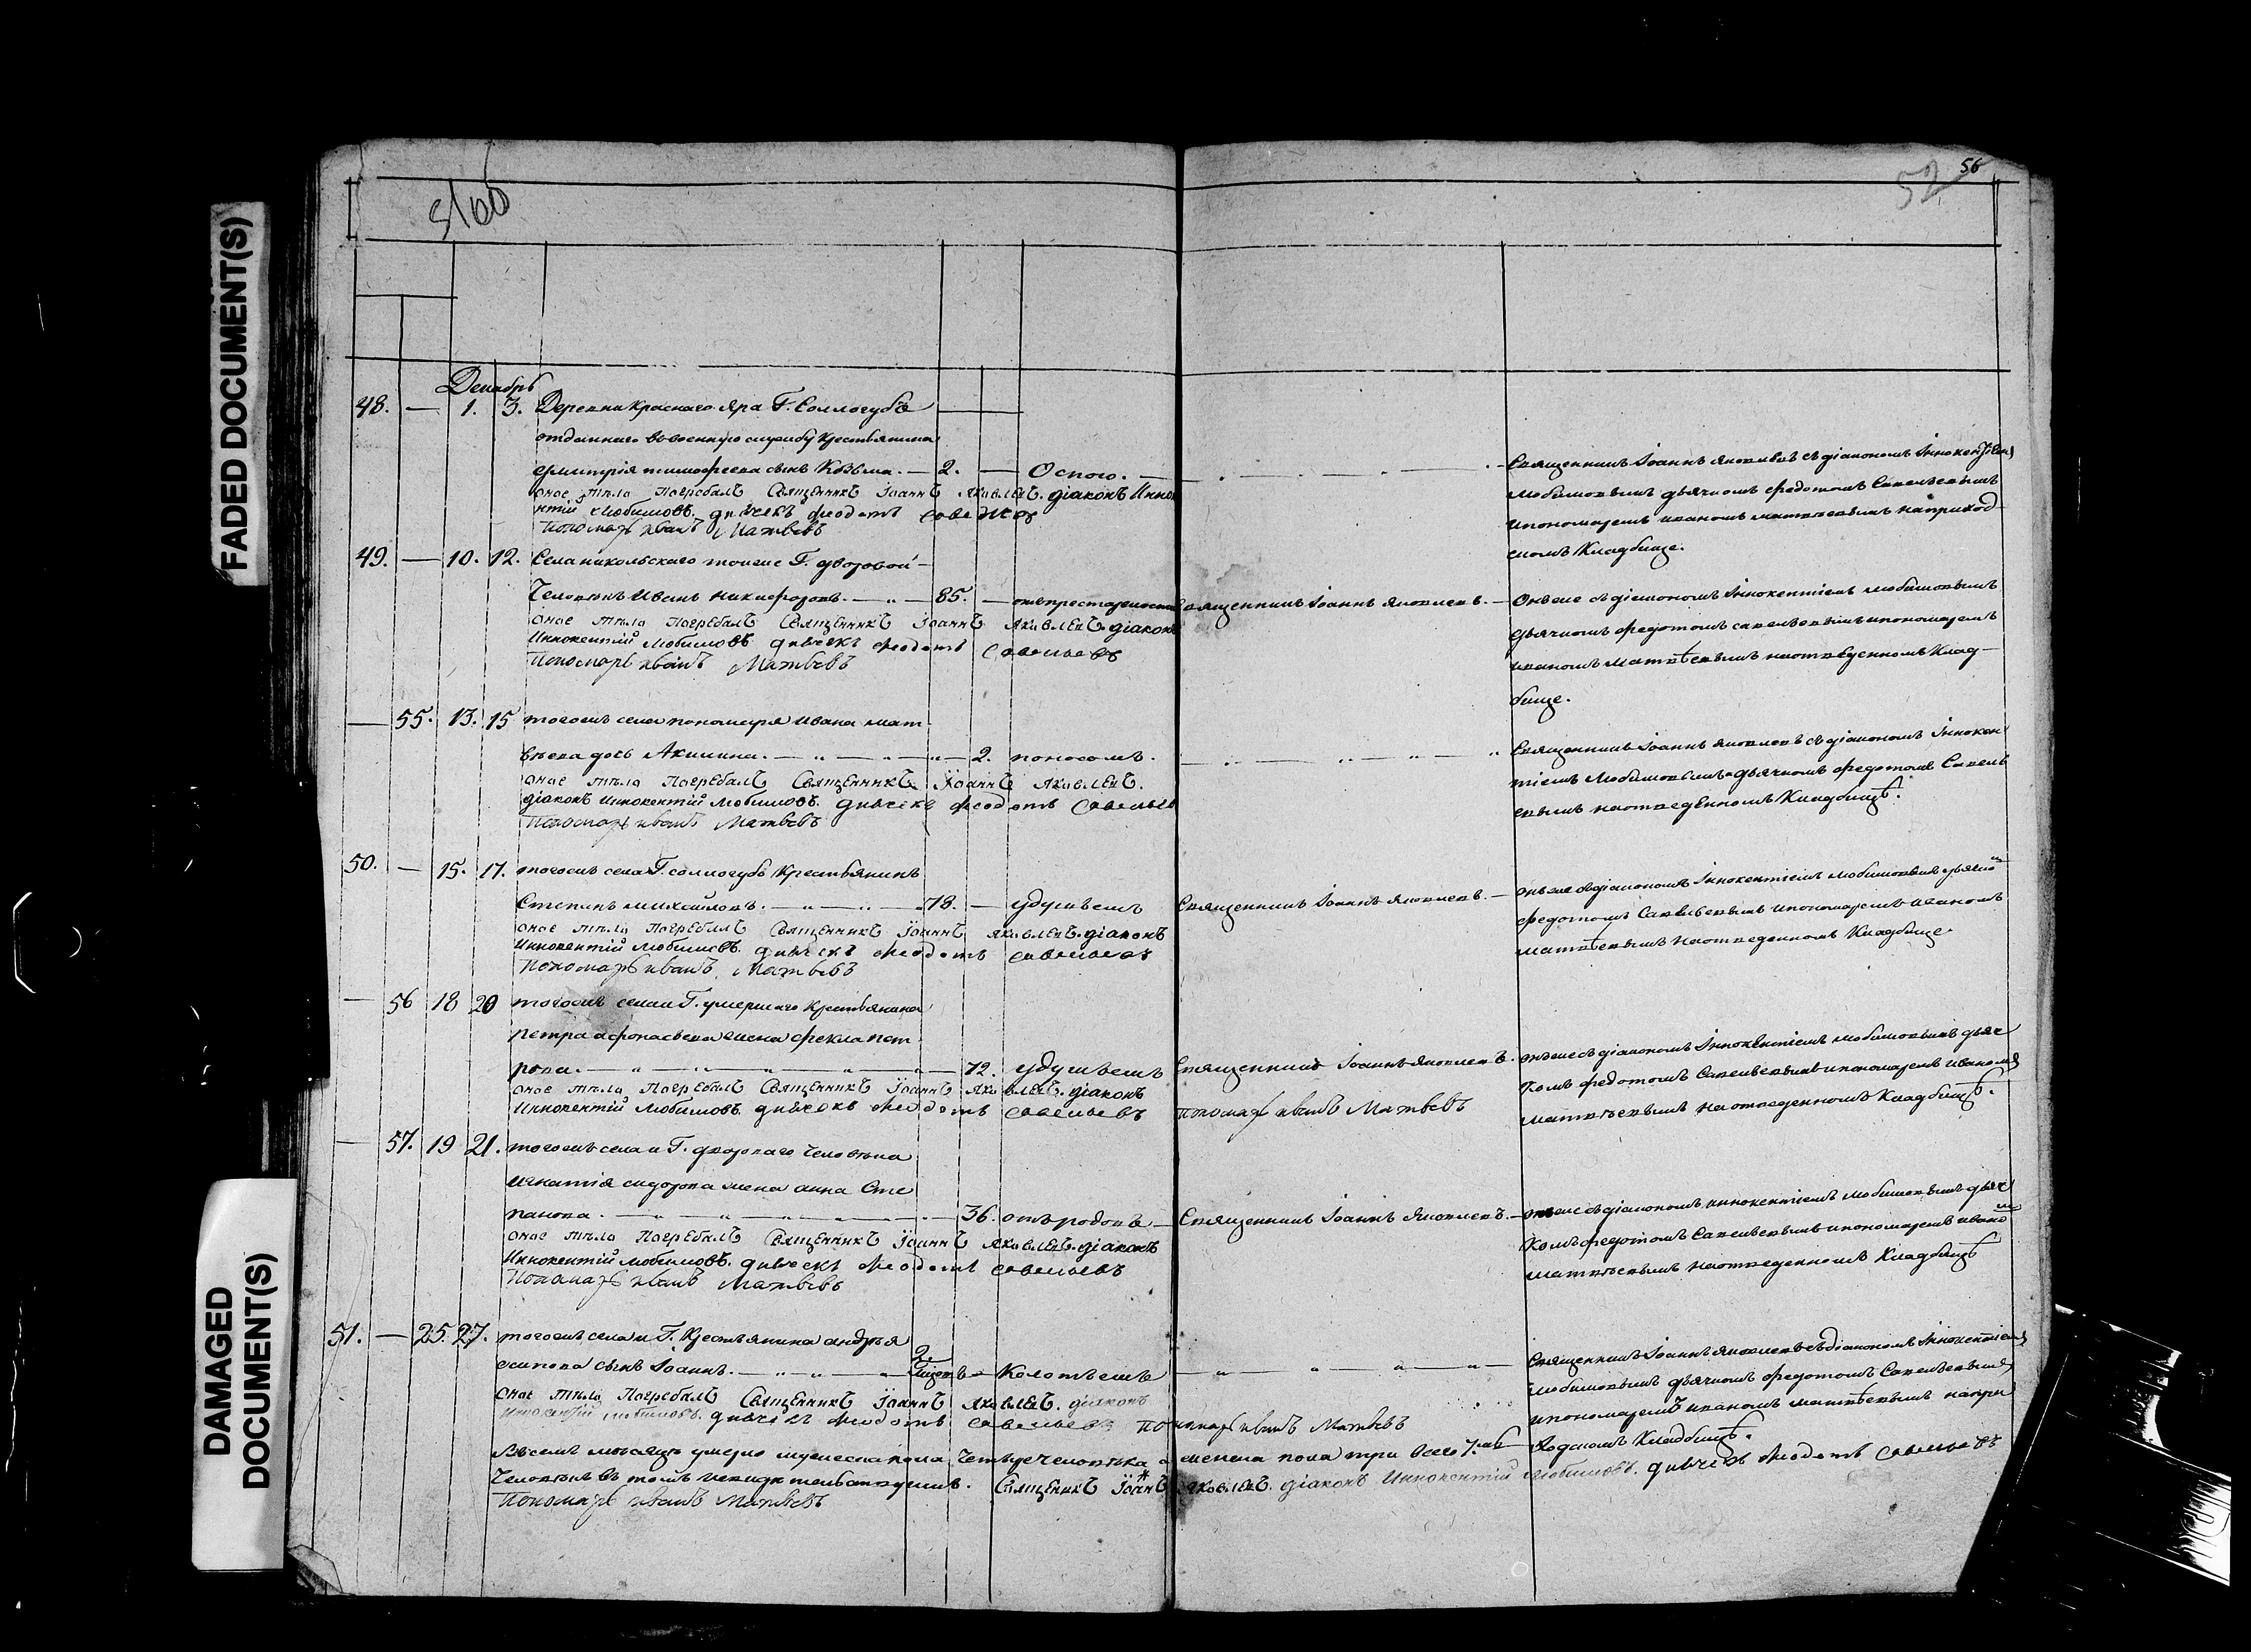 FADED DOCUMENT(S)
DAMAGED DOCUMENT(S)
56
52
Декабрь
48. — 1. 3. Деревни Краснаго Яра Г. Соллогубъ
отданнаго въ военную службу крестьянина
Дмитрія Тимофеева сынъ Козьма. — 2. — Оспою. —
Священникъ Іоаннъ Яковлевъ съ діакономъ Іннокентіемъ
Любимовымъ дьячкомъ Федотомъ Савельевымъ
и пономаремъ Иваномъ Матвѣевымъ на приход
скомъ Кладбище.
оное тѣло погребалъ Священникъ Іоаннъ Яковлевъ. діаконъ Инно
нтій Любимовъ. дьячекъ Феодотъ Савельевъ
Пономарь Иванъ Матвѣевъ
49. — 10. 12. Села Никольскаго тогоже Г. дворовой
Человѣкъ Иванъ Никифоровъ. — 85. — отъ престарелости Священникъ Іоаннъ Яковлевъ. —
Онъже съ діакономъ Іннокентіемъ Любимовымъ
дьячкомъ Федотомъ Савельевымъ и пономаремъ
Иваномъ Матвѣевымъ на отведенномъ Клад-
бище.
оное тѣло погребалъ Священникъ Іоаннъ Яковлевъ. діаконъ
Иннокентій Любимовъ. дьячекъ Феодотъ Савельевъ
Пономарь Иванъ Матвѣевъ
— 55. 13. 15 тогожъ села пономаря Ивана Мат
вѣева дочь Акилина. — 2. поносомъ.
Священникъ Іоаннъ Яковлевъ съ діакономъ Іннокен
тіемъ Любимовымъ дьячкомъ Федотомъ Савель
евымъ на отведенномъ Кладбищѣ.
оное тѣло погребалъ Священникъ Іоаннъ Яковлевъ.
діаконъ Иннокентій Любимовъ. дьячекъ Феодотъ Савельев
Пономарь Иванъ Матвѣевъ
50. — 15. 17. тогожъ села Г. Соллогубъ Крестьянинъ
Степанъ Михайловъ. — 78. — удушьемъ Священникъ Іоаннъ Яковлевъ. —
онъже съ діакономъ Іннокентіемъ Любимовымъ дьячко
Федотомъ Савельевымъ и пономаремъ Иваномъ
Матвѣевымъ на отведенномъ Кладбище.
оное тѣло погребалъ Священникъ Іоаннъ Яковлевъ. діаконъ
Иннокентій Любимовъ. дьячекъ Феодотъ Савельевъ
Пономарь Иванъ Матвѣевъ
— 56 18 20 тогожъ села и Г. умершаго Крестьянина
Петра Афонасьева жена Фекла Пет
рова. — 72. удушьемъ Священникъ Іоаннъ Яковлевъ.
онъже съ діакономъ Іннокентіемъ Любимовымъ дьяч
комъ Федотомъ Савельевымъ и пономаремъ Иваномъ
Матвѣевымъ на отведенномъ Кладбищѣ.
оное тѣло погребалъ Священникъ Іоаннъ Яковлевъ. діаконъ
Иннокентій Любимовъ. дьячекъ Феодотъ Савельевъ Пономарь Иванъ Матвѣевъ
— 57. 19 21. тогожъ села и Г. двороваго Человѣка
Игнатія Сидорова жена Анна Сте
панова. — 36. отъ родовъ — Священникъ Іоаннъ Яковлевъ. —
онъже съ діакономъ Иннокентіемъ Любимовымъ дьяч
комъ Федотомъ Савельевымъ и пономаремъ Ивано
Матвѣевымъ на отведенномъ Кладбищѣ
оное тѣло погребалъ Священникъ Іоаннъ Яковлевъ. діаконъ
Иннокентій Любимовъ. дьячекъ Феодотъ Савельевъ
Пономарь Иванъ Матвѣевъ
51. — 25. 27. тогожъ села и Г. Крестьянина Андрея
Осипова сынъ Іоаннъ. — 2. — Колотьемъ
Священникъ Іоаннъ Яковлевъ съ діакономъ Іннокентіемъ
Любимовымъ дьячкомъ Федотомъ Савельевымъ
и пономаремъ Иваномъ Матвѣевымъ на при
ходскомъ Кладбищѣ.
оное тѣло погребалъ Священникъ Іоаннъ Яковлевъ. діаконъ
Инокентій Любимовъ. дьячекъ Феодотъ Савельевъ Пономарь Иванъ Матвѣевъ
Въ семъ месяцѣ умерло мужеска пола Четыре человѣка а женска пола три всего 7.мь
Человѣкъ въ томъ и свидетельствуемъ. Священникъ Іоаннъ Яковлевъ. діаконъ Иннокентій Любимовъ. дьячекъ Феодотъ Савельевъ
Пономарь Иванъ Матвѣевъ